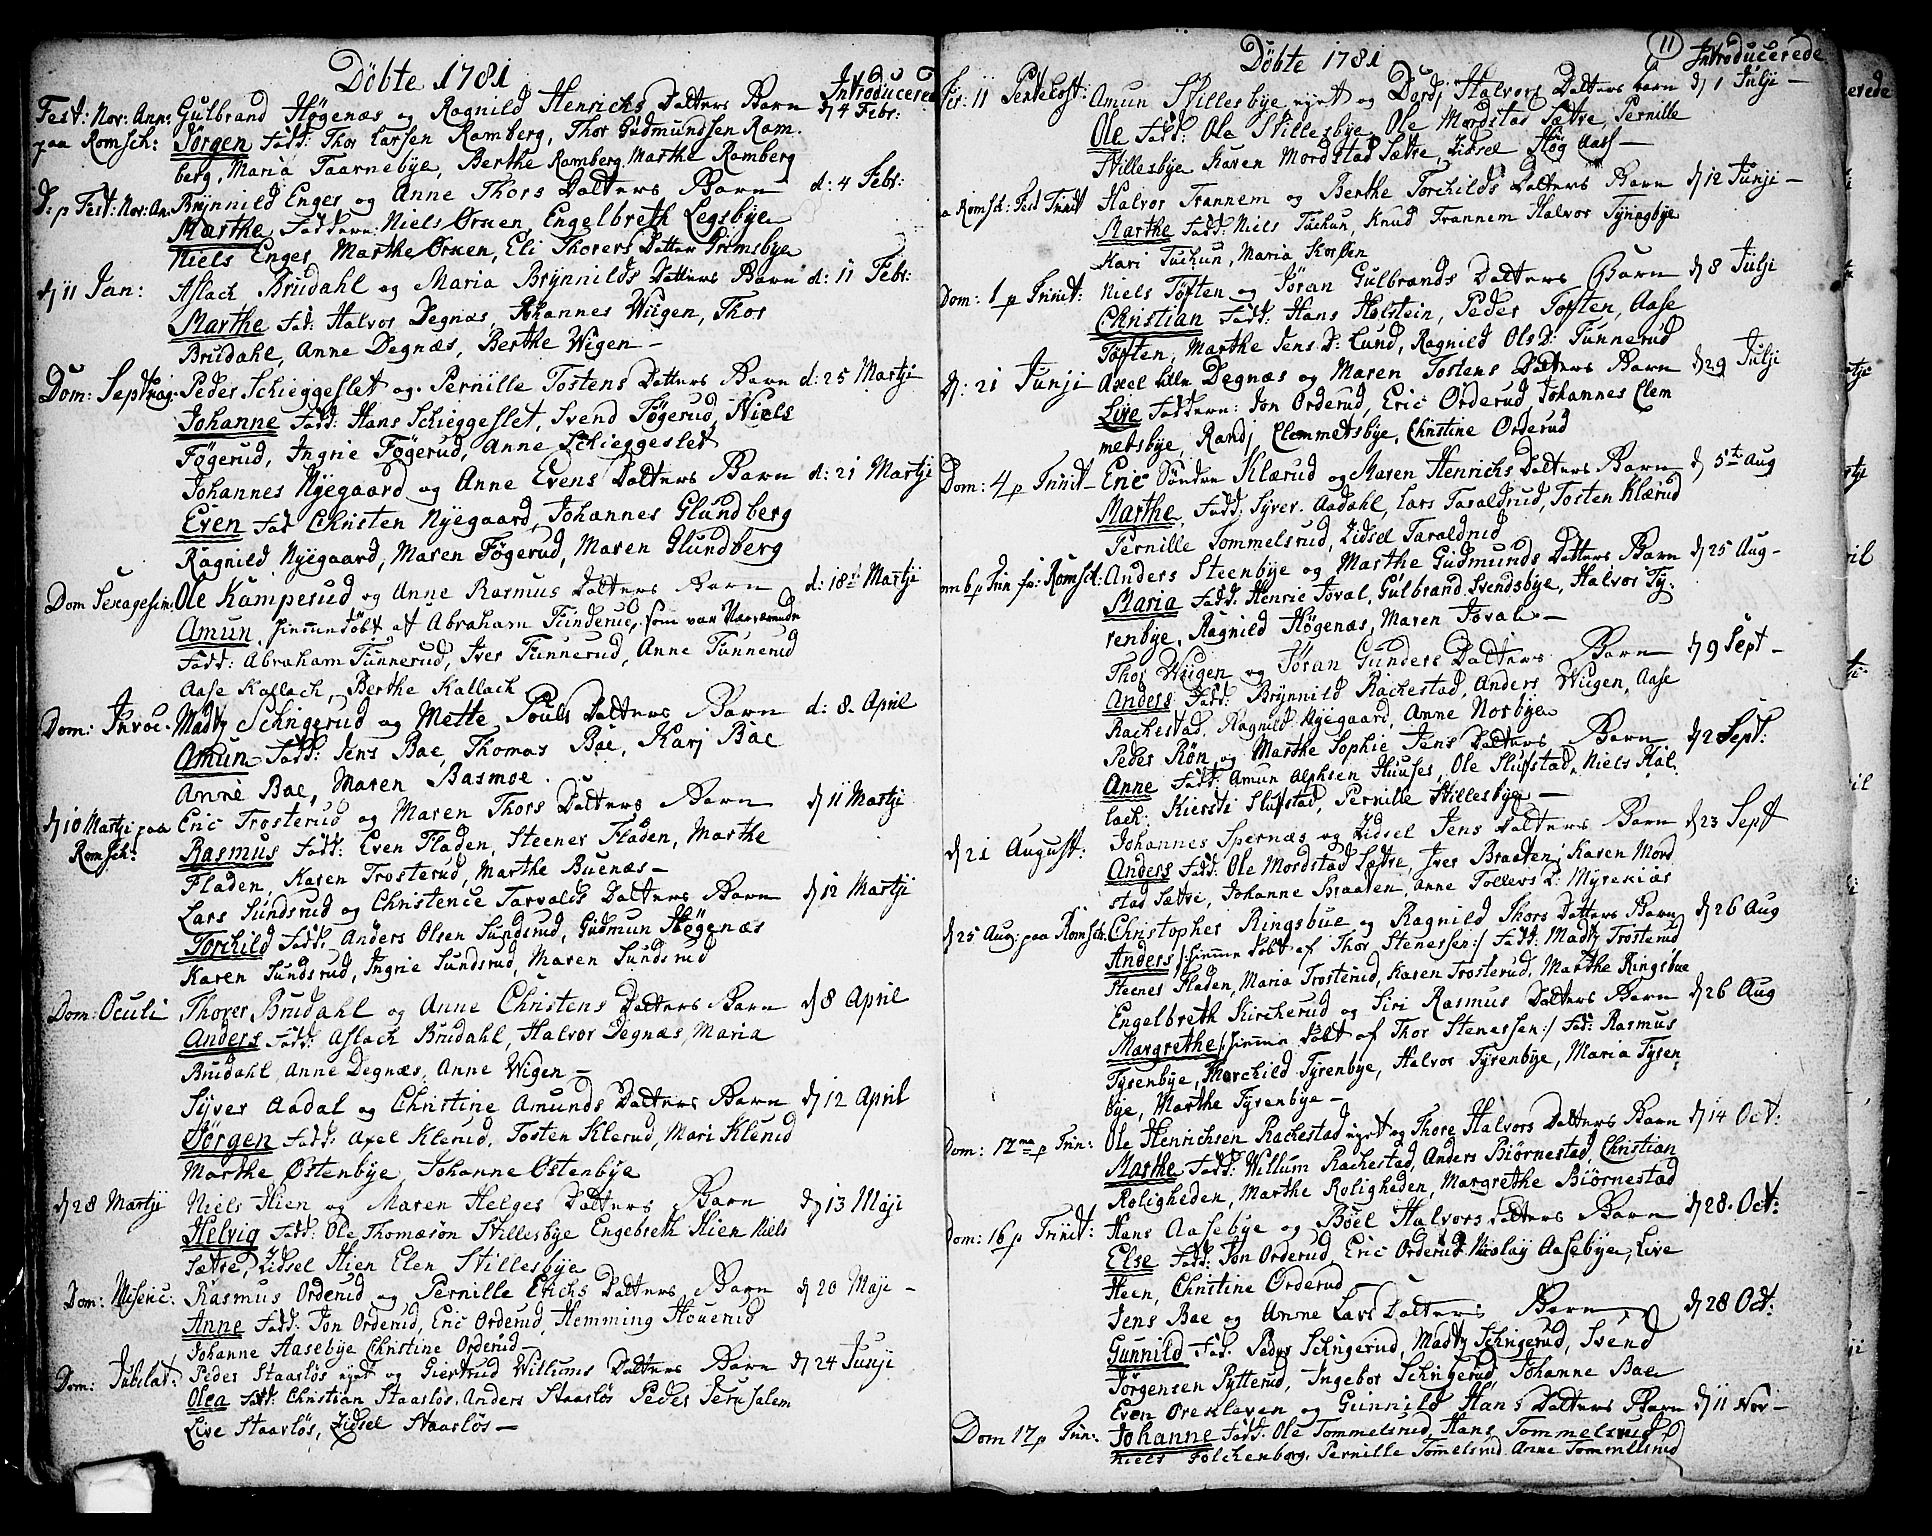 Döbte 1781
Introducered
Fest: Nov: Ann: Gulbrand Høgenæs og Ragnild Henrichs Datters Barn d 4 Febr:
paa Romsch: Jørgen Fadd: Thor Larsen Ramberg, Thor Gudmundsen Ram-
berg, Maria Taarnebye, Berthe Ramberg, Marthe Ramberg
D: p Fest: Nov: An: Brynnild Enger og Anne Thors Datters Barn d: 4 Febr:
Marthe Faddere: Niels Ørnen, Engelbreth Legsbye
Niels Enger, Marthe Ørnen, Eli Thorers Datter Grimsbye
d 11 Jan: Aslach Brudahl og Maria Brynnilds Datters Barn d: 11 Febr:
Marthe Fad: Halvor Degnæs, Johannes Wiigen, Thor
Brudahl, Anne Degnæs, Berthe Wigen –
Dom: Septuag: Peder Schieggeslet og Pernille Tostens Datters Barn d: 25 Martji
Johanne Fadd: Hans Schieggeslet, Svend Føgerud, Niels
Føgerud, Ingrie Føgerud, Anne Schieggeslet
Johannes Nyegaard og Anne Evens Datters Barn d: 21 Martji
Even Fad Christen Nyegaard, Johannes Glundberg
Ragnild Nyegaard, Maren Føgerud, Maren Glundberg
Dom Sexagesim: Ole Kamperud og Anne Rasmus Datters Barn d: 18d Martji
Amun, hiemmedöbt af Abraham Tunderud, som var Nærværende
Fadd: Abraham Tunnerud, Iver Tunnerud, Anne Tunnerud
Aase Kallach, Berthe Kallach
Dom: Invoc: Madtz Schrigerud og Mette Pouls Datters Barn d: 8. April
Amun Fadd: Jens Bae, Thomas Bae, Karj Bae
Anne Bae, Maren Basmoe.
d 10 Martji paa Eric Trosterud og Maren Thors Datters Barn d 11 Martji
Romsch: Rasmus Fadd: Even Fladen, Steener Fladen, Marthe
Fladen, Karen Trosterud, Marthe Buenæs –
Lars Sundsrud og Christence Tarvalds Datters Barn d 12 Martji
Torchild Fadd: Anders Olsen Sundsrud, Gudmun Høgenæs
Karen Sundsrud, Ingrie Sundsrud, Maren Sundsrud
Dom: Oculi Thorer Brudahl og Anne Christens Datters Barn d 8 April
Anders Fadd: Aslach Brudahl, Halvor Degnæs, Maria
Brudahl, Anne Degnæs, Anne Wigen –
Syver Aadal og Christine Amunds Datters Barn d 12 April
Jørgen Fadd: Axel Klerud, Tosten Klerud, Mari Klerud
Marthe Østenbye, Johanne Østenbye
d 28 Martji Niels Hien og Maren Helges Datters Barn d 13 Maji
Helvig Fadd: Ole Thomæsøn Stillesbye Engebreth Hien Niels
Sætre, Zidsel Hien Elen Stillesbye
Dom: Miseric: Rasmus Orderud og Pernille Erichs Datters Barn d 20 Maji –
Anne Fadd: Jon Orderud, Eric Orderud, Hemming Houerud
Johanne Aasebye Christine Orderud –
Dom: Jubilat: Peder Staasløs eyet og Giertrud Willums Datters Barn d 24 Junji
Olea Fadd: Christian Staasløs, Anders Staasløs Peder Jerusalem
Live Staasløs, Zidsel Staasløs –
Döbte 1781
11
Introducerede
Fer: 11 Pentecost: Amun Stillesbye eyet og Dordj Halvors Datters Barn d 1 Julji –
Ole Fadd: Ole Stillesbye, Ole Mordstad Sætre, Pernille
Stillesbye Karen Mordstad Sætre, Zidsel Høg Aas –
a Romsch: Fest Trinit Halvor Trannem og Berthe Torchilds Datters Barn d 12 Junji –
Marthe Fadd: Niels Tuchun, Knud Trannem Halvor Tyrngbye
Kari Tuchun, Maria Korsen
Dom: 1 p Trinit: Niels Toften og Jøran Gulbrands Datters Barn d 8 Julji
Christian Fadd: Hans Holstein, Peder Toften, Aase
Toften, Marthe Jens D: Lund, Ragnild Ols D: Tunnerud
d: 21 Junji Axel lille Degnæs og Maren Tostens Datters Barn d 29 Julji
Live Faddere: Jon Orderud, Eric Orderud Johannes Clem
metsbye, Randj Clemmetsbye, Christine Orderud
Dom: 4 p Trinit – Eric Søndre Klærud og Maren Henrichs Datters Barn d 5te Aug
Marthe, Fadd: Syver Aadahl, Lars Taraldrud, Tosten Klærud
Pernille Tommelsrud, Zidsel Taraldrud
om 6 p Trin fr: Romsch: Anders Steenbye og Marthe Gudmunds Datters Barn d 25 Aug –
Maria Fadd: Henric Joval, Gulbrand Svendsbye, Halvor Ty-
renbye, Ragnild Høgenæs, Maren Joval –
Thor Wiigen og Jøran Gunders Datters Barn d 9 Sept –
Anders Fadd: Brynnild Rachestad, Anders Wiigen, Aase
Rachestad, Ragnild Nyegaard, Anne Norbye
Peder Røn, og Marthe Sophie Jens Datters Barn d 2 Sept:
Anne Fadd: Amun Alphsen Huuser, Ole Slufstad, Niels Kal-
lach: Kiersti Slufstad, Pernille Stillesbye –
d 21 August: Johannes Spernæs og Zidsel Jens Datters Barn d 23 Sept
Anders Fadd: Ole Mordstad Sætre, Iver Braaten, Karen Mord
stad Sætre, Johanne Braaten, Anne Tollevs D: Myrekiær
d 25 Aug: paa Romsch: Christopher Ringsbue og Ragnild Thors Datters Barn d 26 Aug
Anders /: hiemme döbt af Thor Stenersen :/ Fadd: Madtz Trosterud
Steener Fladen, Maria Trosterud, Karen Trosterud, Marthe Ringsbue
Engelbreth Kircherud og Siri Rasmus Datters Barn d 26 Aug
Margrethe /: hiemme döbt af Thor Stenersen :/ Fad: Rasmus
Tyrenbye, Torchild Tyrenbye, Halvor Tyrenbye, Maria Tyren
bye, Marthe Tyrenbye –
Dom: 12ma p Trin: Ole Henrichsen Rachestad eyet og Thore Halvors Datters Barn d 14 Oct:
Marthe Fadd: Willum Rachestad, Anders Biørnestad, Christian
Roligheden, Marthe Roligheden, Margrethe Biørnestad
Dom: 16 p Trinit: Hans Aasebye og Böel Halvors Datters Barn d 28. Oct:
Else Fadd: Jon Orderud, Eric Orderud Nicolay Aasebye, Live
Heen, Christine Orderud –
Jens Bae og Anne Lars Datters Barn d 28 Oct:
Gunnild Fad: Peder Schrigerud, Madtz Schrigerud, Svend
Jørgensen Pytterud, Ingebor Schrigerud Johanne Bae
Dom 17 p Trin: Even Orekleven og Gunnild Hans Datters Barn d 11 Nov –
Johanne Fadd: Ole Tommelsrud, Hans Tommelsrud
Niels Folchenborg, Pernille Tomelsrud Anne Tommelsrud